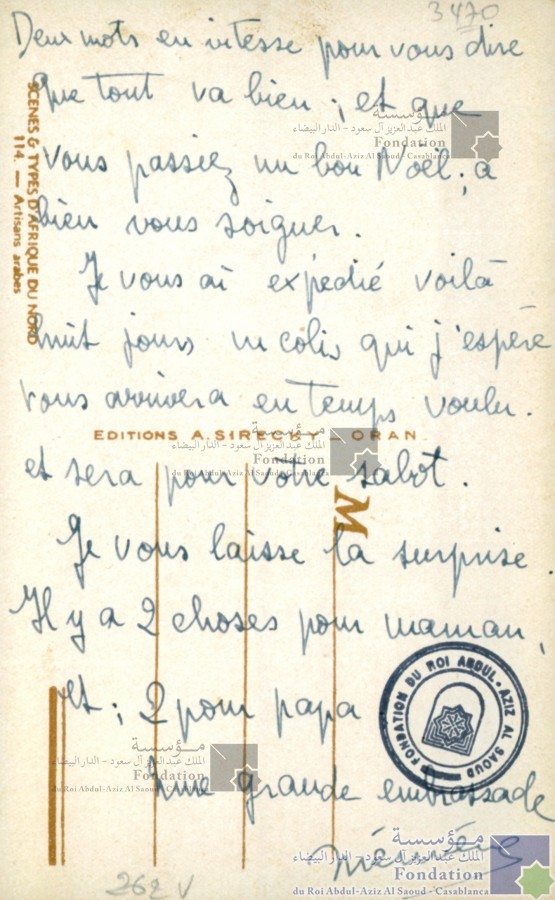 3470
Deux mots en vitesse pour vous dire
que tout va bien ; et que
vous passiez un bon Noël ; à
bien vous soigner.
Je vous ai expédié voilà
huit jours un colis qui j'espère
vous arrivera en temps voulu.
et sera pour votre sabot.
Je vous laisse la surprise.
Il y a 2 choses pour maman,
et ; 2 pour papa
Une grande embrassade
SCENES & TYPES D'AFRIQUE DU NORD
114. — Artisans arabes
EDITIONS A. SIRECKY - ORAN
M
FONDATION DU ROI ABDUL-AZIZ AL SAOUD
262 V
مؤسسة
الملك عبد العزيز آل سعود - الدار البيضاء
Fondation
du Roi Abdul-Aziz Al Saoud - Casablanca
مؤسسة
الملك عبد العزيز آل سعود - الدار البيضاء
Fondation
du Roi Abdul-Aziz Al Saoud - Casablanca
مؤسسة
الملك عبد العزيز آل سعود - الدار البيضاء
Fondation
du Roi Abdul-Aziz Al Saoud - Casablanca
مؤسسة
الملك عبد العزيز آل سعود - الدار البيضاء
Fondation
du Roi Abdul-Aziz Al Saoud - Casablanca